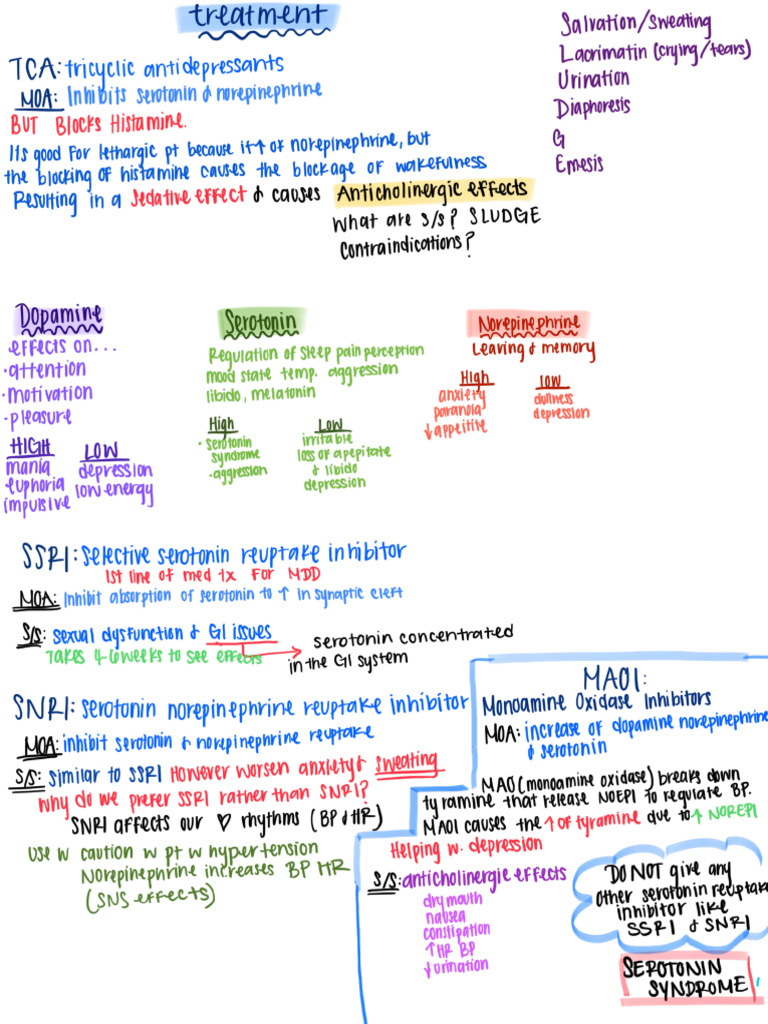 treatment
TCA: tricyclic antidepressants
MOA: Inhibits serotonin & norepinephrine
BUT Blocks Histamine.
It's good for lethargic pt because it ↑ of norepinephrine, but
the blocking of histamine causes the blockage of wakefulness
Resulting in a sedative effect & causes Anticholinergic effects
What are s/s? SLUDGE
Contraindications?
Salvation/sweating
Lacrimatin (crying/tears)
Urination
Diaphoresis
G
Emesis
Dopamine
effects on...
·attention
·motivation
·pleasure
HIGH
mania
euphoria
impulsive
LOW
depression
low energy
Serotonin
Regulation of sleep pain perception
mood state temp. aggression
libido, melatonin
High
· serotonin
syndrome
·aggression
Low
irritable
loss of apepitate
& libido
depression
Norepinephrine
Leaving & memory
High
anxiety
paranoia
↓ appetite
LOW
dullness
depression
SSRI: selective serotonin reuptake inhibitor
1st line of med tx for MDD
MOA: Inhibit absorption of serotonin to ↑ in synaptic cleft
S/S: sexual dysfunction & GI issues
Takes 4-6 weeks to see effects
serotonin concentrated
in the GI system
SNRI: serotonin norepinephrine reuptake inhibitor
MOA: inhibit serotonin & norepinephrine reuptake
S/S: similar to SSRI However worsen anxiety & sweating
Why do we prefer SSRI rather than SNRI?
SNRI affects our ♡ rhythms (BP & HR)
Use w caution w pt w hypertension
Norepinephrine increases BP HR
(SNS effects)
MAOI:
Monoamine Oxidase Inhibitors
MOA: increase of dopamine norepinephrine
& serotonin
MAO (monoamine oxidase) breaks down
tyramine that release NOEPI to regulate BP.
MAOI causes the ↑ of tyramine due to ↑ NOREPI
Helping w. depression
S/S: anticholinergic effects
dry mouth
nausea
constipation
↑ HR BP
↓ urination
DO NOT give any
other serotonin reuptake
inhibitor like
SSRI & SNRI
SEROTONIN
SYNDROME